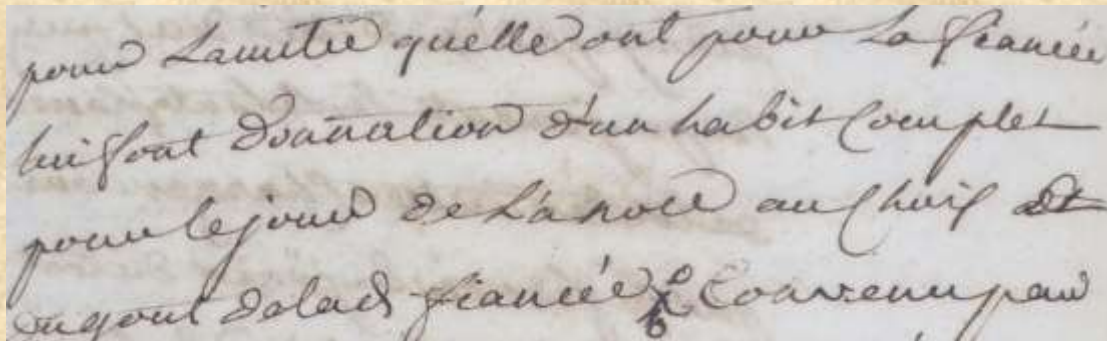 pour Lamitié qu'elle ont pour La fiancée
lui font donnation d'un habit Complet
pour le jour de La noce au Choix et
du gout delad fiancée Convenu par